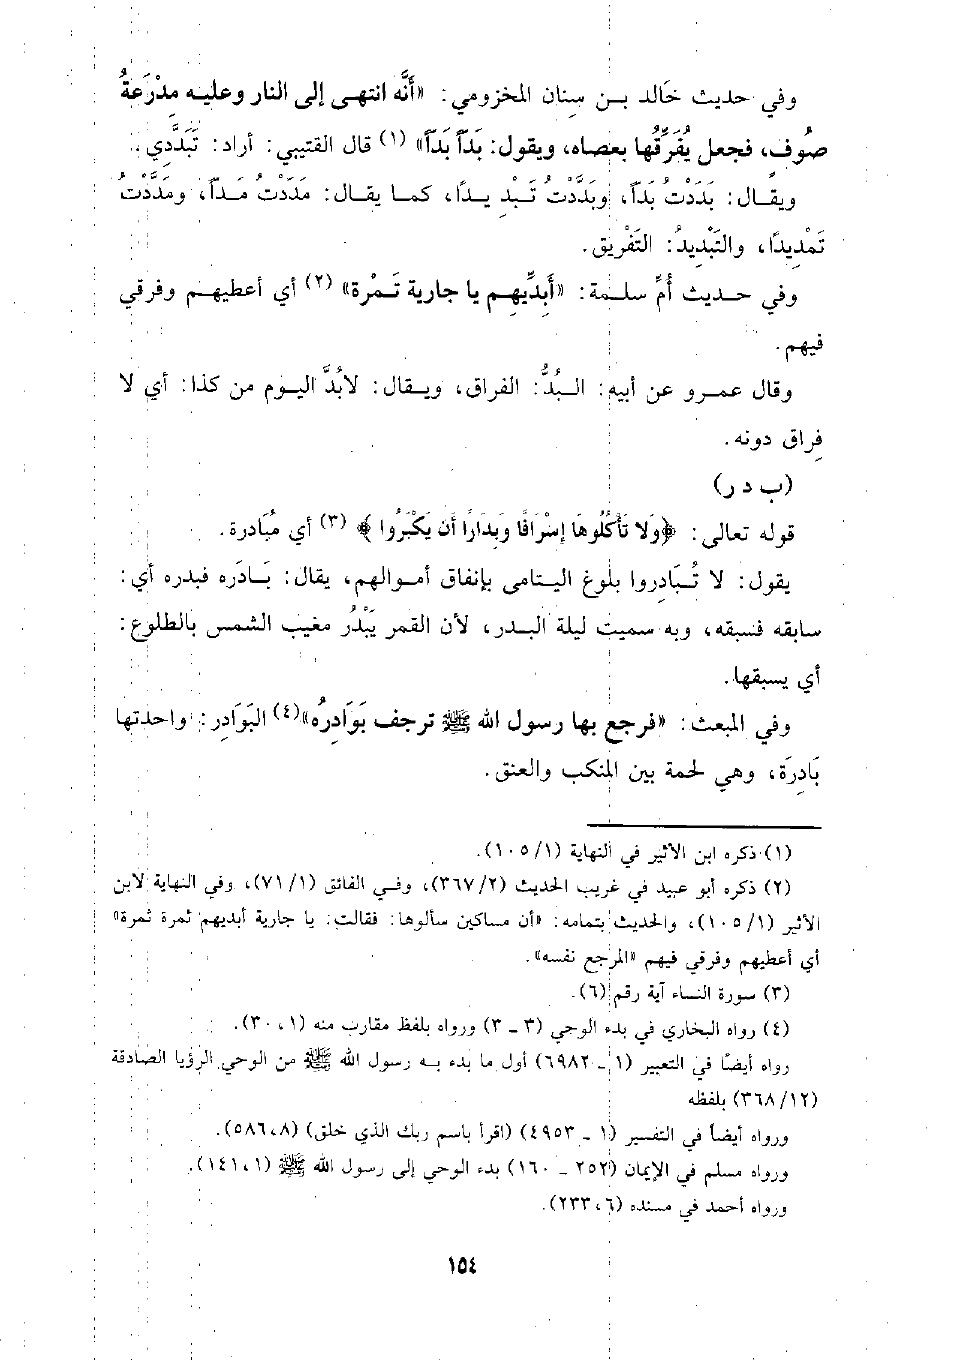 وفي حديث خَالد بـن سِنان المخزومي: «أَنَّه انتهـى إلى النار وعليـه مدْرَعةُ
صُوف، فجعل يُفَرِّقُها بعصاه، ويقول: بَدّاً بَدّاً» (١) قال القتيبي: أراد: تَبَدَّدي.
ويقـال: بَدَدْتُ بَدّاً، وبَدَّدْتُ تَـبْدِيـداً، كمـا يقال: مَدَدْتُ مَـدّاً، ومَدَّدْتُ
تَمْدِيدًا، والتَبْدِيدُ: التَفْرِيق.
وفي حـديث أُمِّ سلـمة: «أَبِدِّيهِـم يا جارية تَـمْرة» (٢) أي أعطيهـم وفرقي
فيهم.
وقال عمـرو عن أبيه: الـبُدُّ: الفراق، ويـقال: لابُدَّ اليـوم من كذا: أي لا
فِراق دونه.
(ب د ر)
قوله تعالى: ﴿وَلا تَأْكُلُوهَا إِسْرَافًا وَبِدَارًا أَن يَكْبَرُوا﴾ (٣) أي مُبَادرة.
يقول: لا تُـبَادِروا بلوغ اليـتامى بإنفاق أمـوالهم، يقال: بَـادَره فبدره أي:
سابقه فسبقه، وبه سميت ليلة البـدر، لأن القمر يَبْدُر مغيب الشمس بالطلوع:
أي يسبقها.
وفي المبعث: «فرجع بها رسول الله ﷺ ترجف بَوَادِرُه»(٤) البَوَادِر: واحدتها
بَادِرَة، وهي لحمة بين المنكب والعنق.
(١) ذكره ابن الأثير في النهاية (١/ ١٠٥).
(٢) ذكره أبو عبيد في غريب الحديث (٢/ ٣٦٧)، وفـي الفائق (١/ ٧١)، وفي النهاية لابن
الأثير (١/ ١٠٥)، والحديث بتمامه: «أن مساكين سألوها: فقالت: يا جارية أبديهم ثمرة ثمرة»
أي أعطيهم وفرقي فيهم «المرجع نفسه».
(٣) سورة النساء آية رقم (٦).
(٤) رواه البخاري في بدء الوحي (٣ ـ ٣) ورواه بلفظ مقارب منه (١، ٣٠).
رواه أيضًا في التعبير (١ ـ ٦٩٨٢) أول ما بدء بـه رسول الله ﷺ من الوحي الرؤيا الصادقة
(١٢/ ٣٦٨) بلفظه
ورواه أيضاً في التفسير (١ ـ ٤٩٥٣) (اقرأ باسم ربك الذي خلق) (٨، ٥٨٦).
ورواه مسلم في الإيمان (٢٥٢ ـ ١٦٠) بدء الوحي إلى رسول الله ﷺ (١، ١٤١).
ورواه أحمد في مسنده (٦، ٢٣٣).
١٥٤